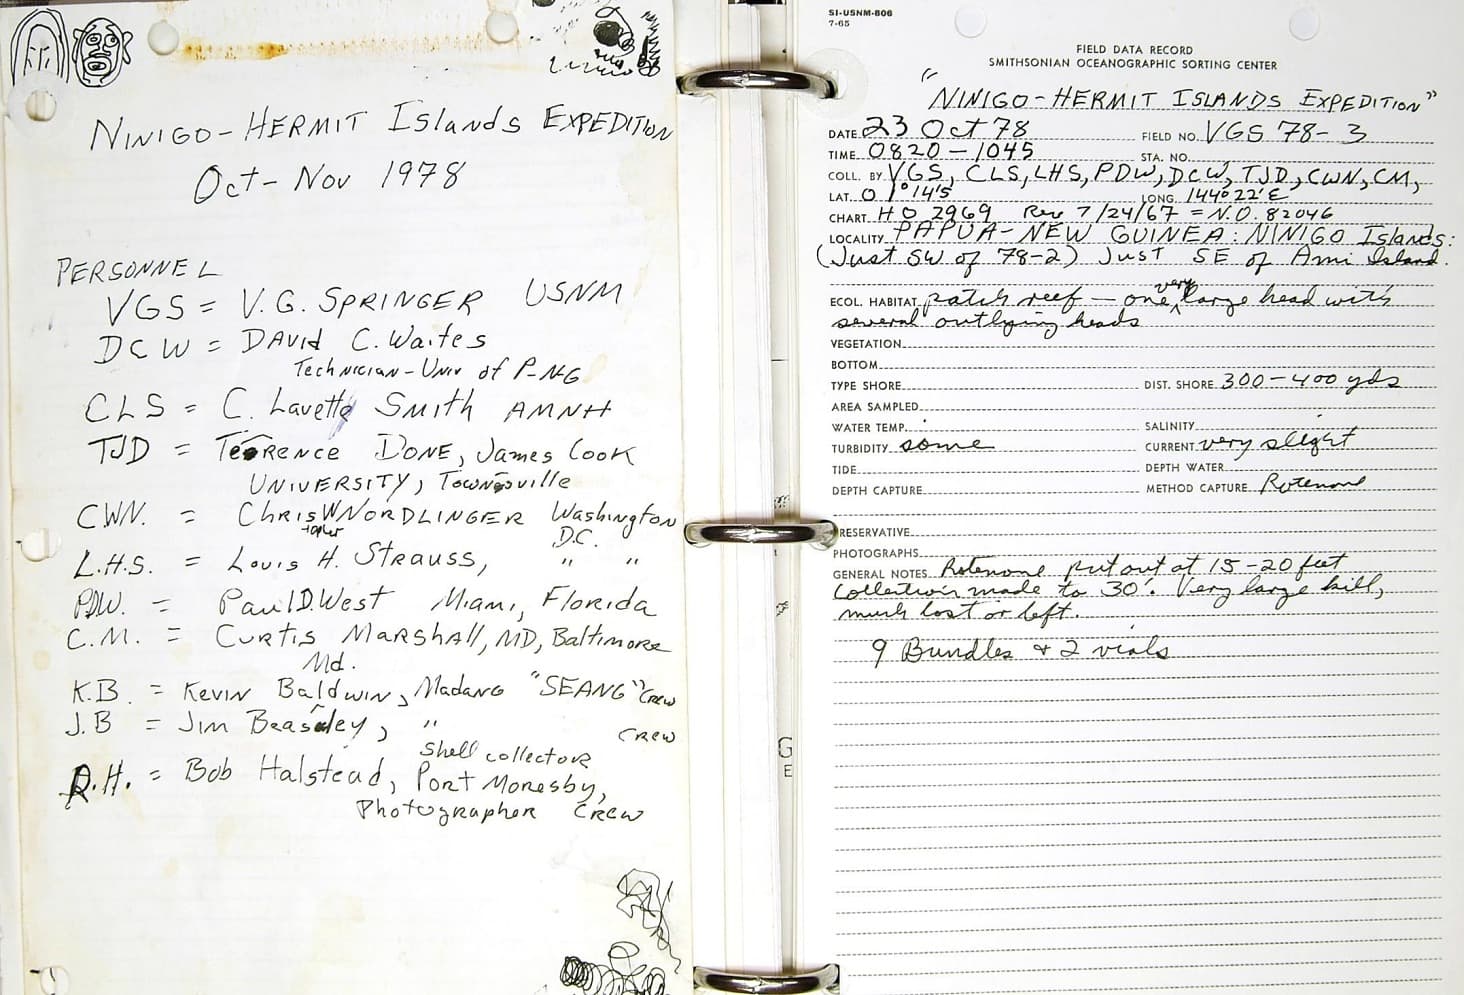 NINIGO-HERMIT Islands EXPEDITION
Oct-Nov 1978
PERSONNEL
VGS = V.G. SPRINGER USNM
DCW = DAVID C. Waites
Technician-Univ of P-NG
CLS = C. Lavette Smith AMNH
TJD = TERRENCE DONE, James Cook
UNIVERSITY, Townsville
CWN. = Chris W NORDLINGER Washington
D.C.
L.H.S. = Louis H. Strauss, " "
PDW. = Paul D. West Miami, Florida
C.M. = Curtis Marshall, MD, Baltimore
Md.
K.B. = Kevin Baldwin, Madang "SEANG" Crew
J.B = Jim Beasley, " Crew
Shell collectors
R.H. = Bob Halstead, Port Moresby,
Photographer Crew
SI-USNM-806
7-65
FIELD DATA RECORD
SMITHSONIAN OCEANOGRAPHIC SORTING CENTER
"NINIGO-HERMIT ISLANDS EXPEDITION"
DATE 23 Oct 78 FIELD NO. VGS 78-3
TIME 0820-1045 STA. NO.
COLL. BY VGS, CLS, LHS, PDW, DCW, TJD, CWN, CM,
LAT. 01°14'S LONG. 144°22'E
CHART HO 2969 Rev 7/24/67 = N.O. 82046
LOCALITY PAPUA-NEW GUINEA: NINIGO Islands:
(Just SW of 78-2) Just SE of Ami Island.
ECOL. HABITAT patch reef - one very large head with
several outlying heads
VEGETATION
BOTTOM
TYPE SHORE DIST. SHORE 300-400 yds
AREA SAMPLED
WATER TEMP. SALINITY
TURBIDITY some CURRENT very slight
TIDE DEPTH WATER
DEPTH CAPTURE METHOD CAPTURE Rotenone
PRESERVATIVE
PHOTOGRAPHS
GENERAL NOTES Rotenone put out at 15-20 feet
collection made to 30'. Very large kill,
much lost or left.
9 Bundles + 2 vials
G
E